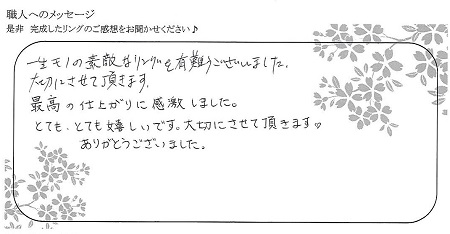 職人へのメッセージ
是非 完成したリングのご感想をお聞かせください♪
一生モノの素敵なリングを有難うございました。
大切にさせて頂きます。
最高の仕上がりに感激しました。
とても、とても嬉しいです。大切にさせて頂きます♡
ありがとうございました。